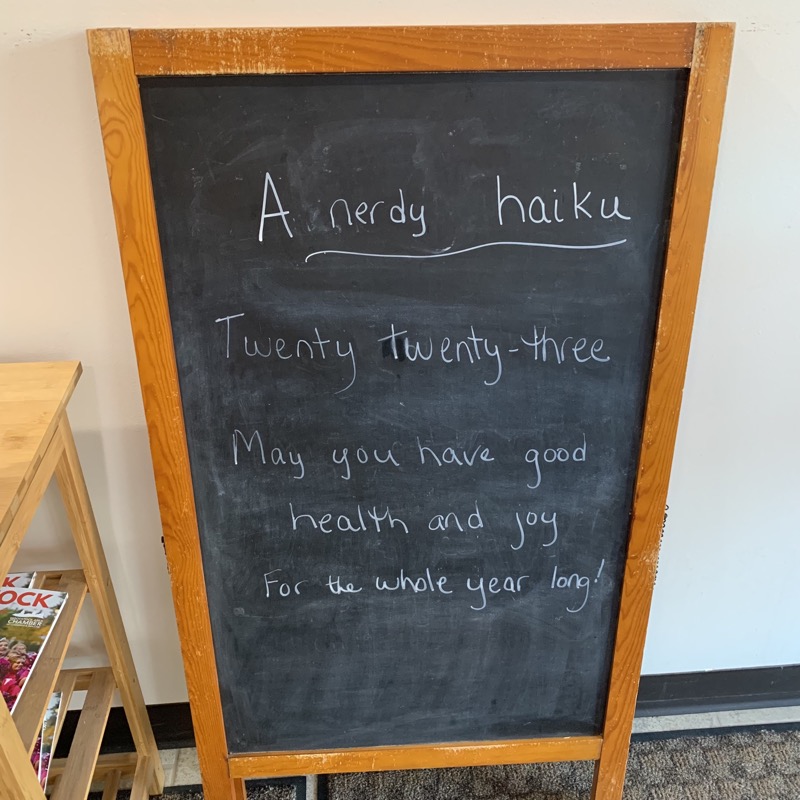 A nerdy haiku
Twenty twenty-three
May you have good
health and joy
For the whole year long!
OCK
CHAMBER